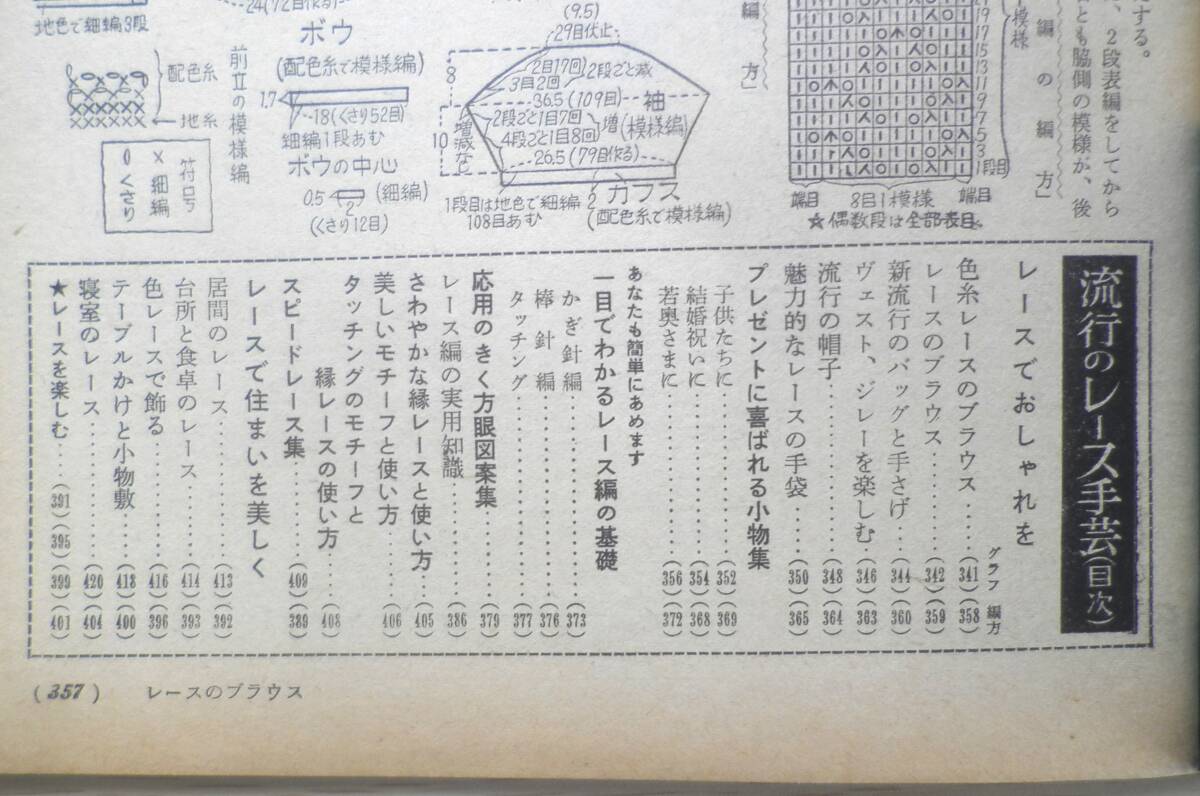 する。
、2段表編をしてから
とも脇側の模様が、後
編の編方」
編方」
19
17
15
13
11
9
7
5
3
1段目
模様
端目
8目1模様
端目
☆偶数段は全部表目
(9.5)
29目伏止
2目17回
3目2回
2段ごと減
8
36.5(109目)
袖
2段ごと1目7回
4段ごと1目8回
増
(模様編)
10
増減なし
26.5(79目作る)
カフス
2
(配色糸で模様編)
1段目は地色で細編
108目あむ
24(72目作る)
ボウ
(配色糸で模様編)
1.7
18(くさり52目)
細編1段あむ
ボウの中心
0.5
(細編)
2
(くさり12目)
地色で細編3段
前立の模様編
配色糸
地糸
符号
×細編
くさり
流行のレース手芸(目次)
レースでおしゃれを
グラフ 編方
色糸レースのブラウス……(341)(358)
レースのブラウス……(342)(359)
新流行のバッグと手さげ…(344)(360)
ヴェスト、ジレーを楽しむ(346)(363)
流行の帽子……(348)(364)
魅力的なレースの手袋……(350)(365)
プレゼントに喜ばれる小物集
子供たちに……(352)(369)
結婚祝いに……(354)(368)
若奥さまに……(356)(372)
あなたも簡単にあめます
一目でわかるレース編の基礎
かぎ針編……(373)
棒針編……(376)
タッチング……(377)
応用のきく方眼図案集……(379)
レース編の実用知識……(386)
さわやかな縁レースと使い方…(405)
美しいモチーフと使い方……(406)
タッチングのモチーフと
縁レースの使い方…(408)
スピードレース集……(409)(389)
レースで住まいを美しく
居間のレース……(413)(392)
台所と食卓のレース……(414)(393)
色レースで飾る……(416)(396)
テーブルかけと小物敷……(418)(400)
寝室のレース……(420)(404)
★レースを楽しむ……(391)(395)(399)(401)
(357) レースのブラウス